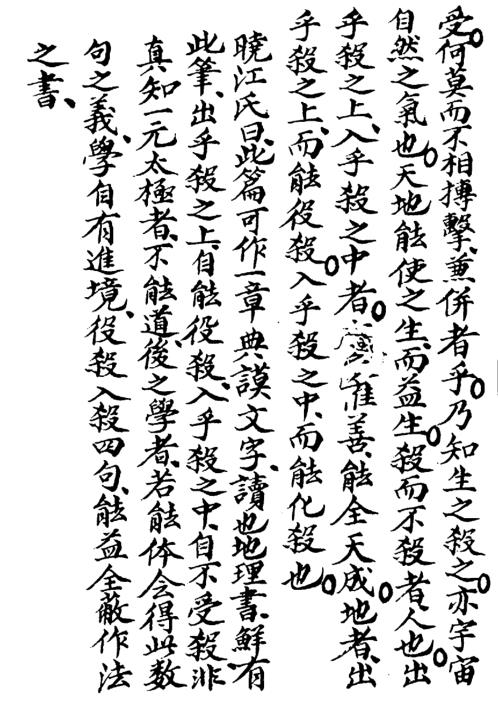 受。何莫而不相摶擊、兼併者乎。乃知生之殺之。亦宇宙
自然之氣也。天地能使之生、而益生。殺而不殺者、人也。出
乎殺之上、入乎殺之中者。惟善、能全天成地者、出
乎殺之上、而能役殺。入乎殺之中、而能化殺也。
曉江氏曰、此篇可作一章典謨文字、讀也地理書、鮮有
此筆、出乎殺之上、自能役殺、入乎殺之中、自不受殺、非
真知一元太極者、不能道、後之學者、若能体会得此数
句之義、學自有進境、役殺入殺四句、能益全蔽作法
之書、